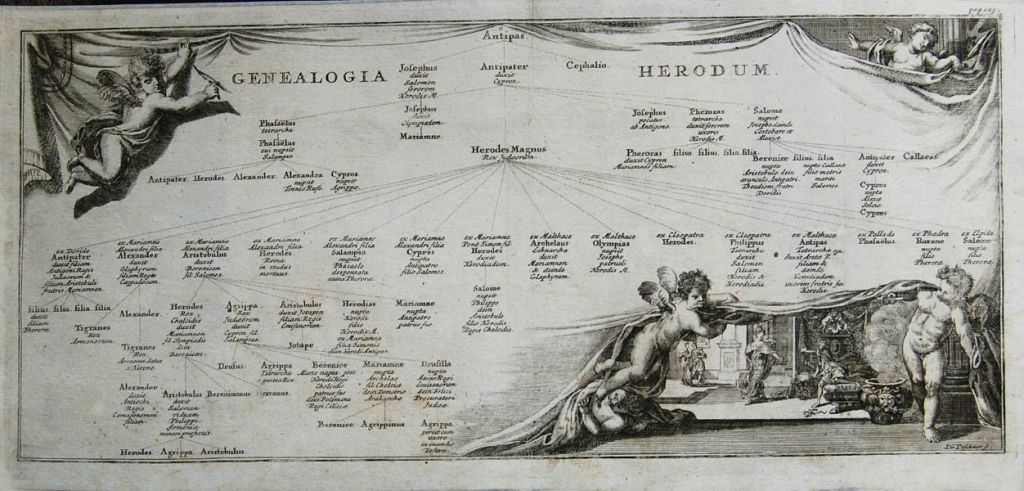 pag. 289.
Antipas.
GENEALOGIA HERODUM
Josephus
duxit
Salomen
sororem
Herodis M.
Antipater
duxit
Cypron.
Cephalio.
Josephus
duxit
Olympiadem.
Mariamne.
Phasaëlus
tetrarcha
Phasaëlus
cui nupsit
Salampsio
Herodes Magnus
Rex Judaeorum.
Josephus
necatus
ab Antigono.
Pheroras
tetrarcha
duxit sororem
uxoris
Herodis M.
Salome
nupsit
Josepho deinde
Costobaro et
Alexae
Antipater. Herodes. Alexander.
Alexandra
nupsit
Timnio Cypr.
Cypros
nupsit
Agrippae.
Pheroras
duxit Cypron
Mariamnes filiam.
filius. filius. filia. filia.
Berenice
nupta
Aristobulo dein
avunculo Antipatri
Theudioni fratri
Doridis
filius. filia
nupta Callaeo
filio matris
mariti
Salomes
Antipater
duxit
Cypron.
Callaeas
Cypros
nupta
Alexae
Selcio
Cypros
ex Doride
Antipater
duxit filiam
Antigoni Regis
Judaeorum et
filiam Aristobuli
fratris Mariamnes.
ex Mariamne
Alexandri filia
Alexander
duxit
Glaphyram
filiam Regis
Cappadocum.
ex Mariamne
Alexandri filia
Aristobulus
duxit
Berenicen
fil. Salomes.
ex Mariamne
Alexandri filia
Herodes
Romae
in studiis
mortuus.
ex Mariamne
Alexandri filia
Salampsio
nupta
Phasaelo
desponsata
antea Pherorae.
ex Mariamne
Alexandri filia
Cypros
nupta
Antipatro
filio Salomes.
ex Mariamne
Pont. Simon. fil.
Herodes
duxit
Herodiadem.
Salome
nupsit
Philippo
dein
Aristobulo
filio Herodis
Regis Chalcidis.
ex Malthace
Archelaus
Ethnarcha
duxit
Mariamnen
& deinde
Glaphyram.
ex Malthace
Olympias
nupta
Josepho
patrueli
Herodis M.
ex Cleopatra
Herodes.
ex Cleopatra
Philippus
Tetrarcha
duxit
Salomen
filiam
Herodis &
Herodiadis
ex Malthace.
Antipas
Tetrarcha qui
duxit Aretae P.
filiam &
deinde
Herodiadem
uxorem fratris sui
Herodis.
ex Pallade
Phasaelus
ex Phaedra
Roxane
nupta
filio
Pherorae
ex Elpide
Salome
nupta
filio
Pherorae.
Filius
duxit
filiam
Pherorae.
filia. filia. filia.
Tigranes
Rex
Armenorum.
Alexander.
Tigranes
Rex
Armeniae datus
a Nerone.
Herodes
Rex
Chalcidis
duxit
Mariamnen
fil. Olympiadis
dein
Berenicen.
Agrippa
Rex
Judaeorum
duxit
Cypron fil.
Salampsus.
Aristobulus
duxit Jotapen
filiam Regis
Emesenorum.
Jotape
Herodias
nupta
Herodi
filio
Herodis M.
ex Mariamne
filia Simonis
dein Herodi Antipae.
Mariamne
nupta
Antipatro
patruo suo.
Alexander
duxit
Antiochi
Regis
Comagenorum
filiam.
Aristobulus
duxit
Salomen
viduam
Philippi
Armenia
minori praefecit.
Berenicianus Hyrcanus.
Drusus.
Agrippa
Tetrarcha
postea Rex.
Berenice
Marco nupta post
Herodi Regi
Chalcidis
patruo suo
dein Polemoni
Regi Ciliciae.
Mariamne
nupta
Archelao
fil. Chelciae
dein Demetrio
Alabarchae
Drusilla
nupta
Azizo Regi
Emesenorum
dein Felici
Procuratori
Judaeae
Berenice
Agrippinus
Agrippa
periit cum
uxore
in incendio
Vesuvii.
Herodes Agrippa Aristobulus.